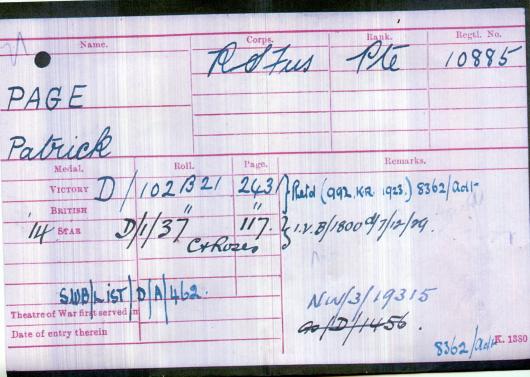 Name. Corps. Rank. Regtl. No.
R D Fus Pte 10885
PAGE
Patrick
Medal. Roll. Page. Remarks.
VICTORY D/102B21 2431 } Retd (992 KR 1923) 8362/adt
BRITISH " "
'14 STAR D/1/37 117. } I.V. B/1800 d/7/12/29.
C+Roses
SWB/LIST/D/A/462.
Theatre of War first served in
Date of entry therein
NW/3/19315
/D/1456.
8362/adt K. 1380